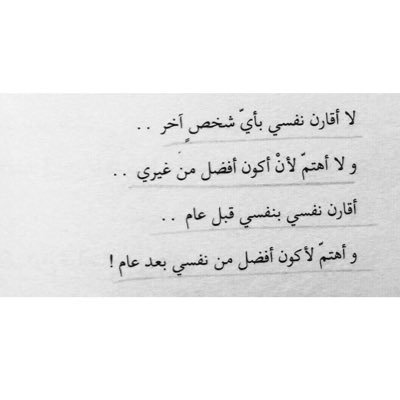 لا أقارن نفسي بأيّ شخصٍ آخر . .
و لا أهتمّ لأنْ أكون أفضل منَ غيري . .
أقارن نفسي بنفسي قبل عام . .
و أهتمّ لأكون أفضل من نفسي بعد عام !